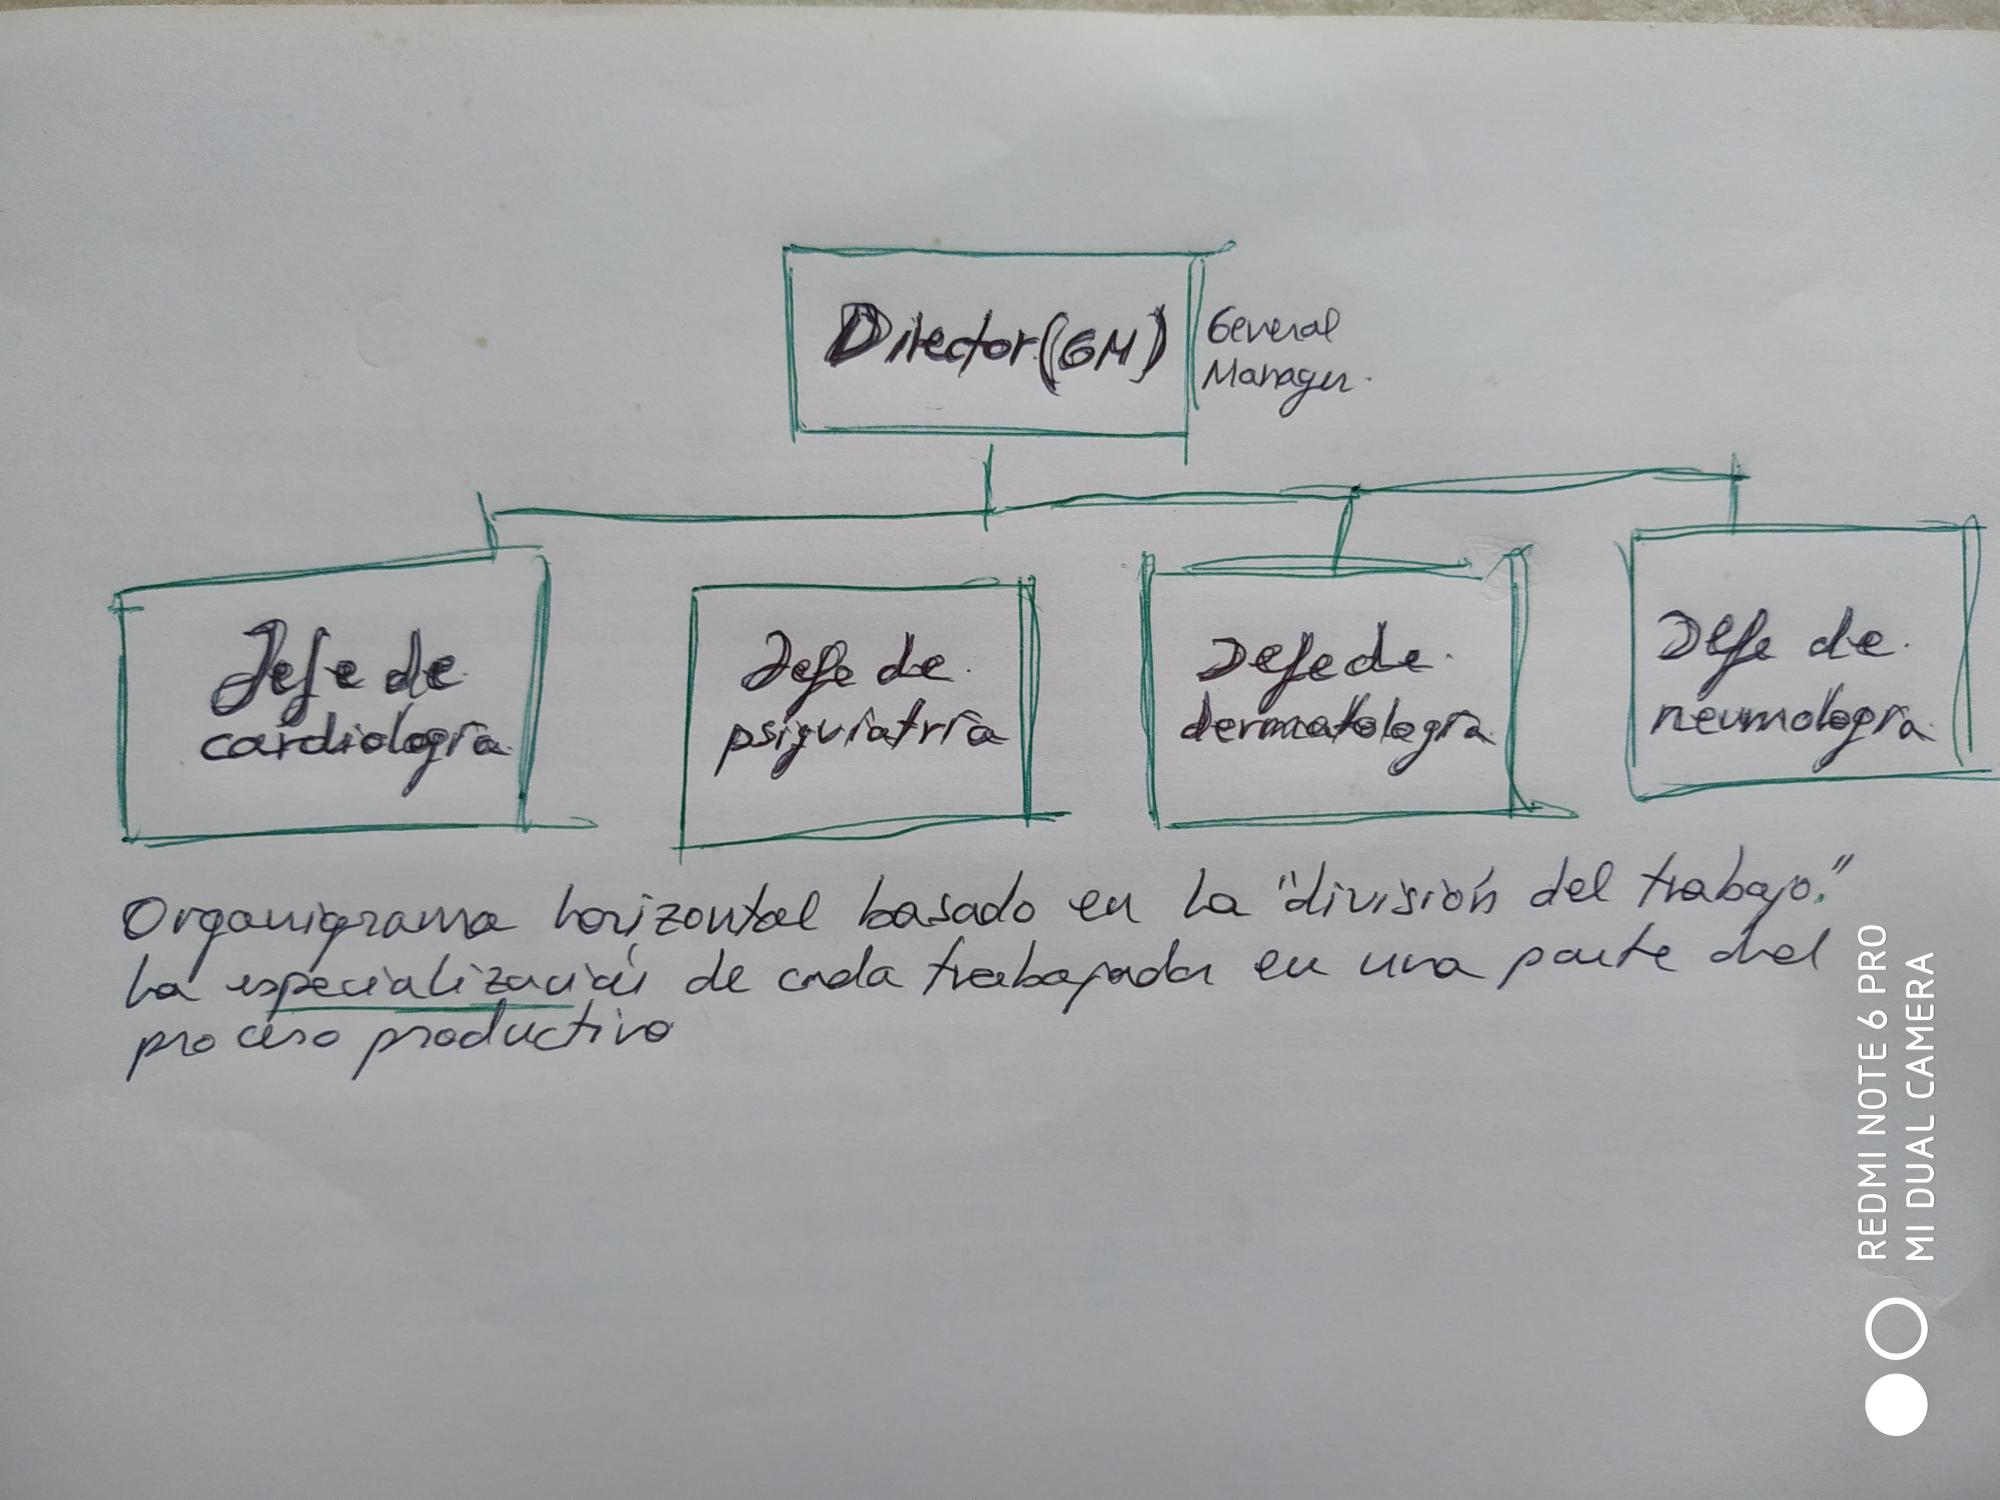 Director (GM)
General
Manager.
Jefe de
cardiología
Jefe de.
psiquiatría
Jefe de.
dermatología
Jefe de.
neumología
Organigrama horizontal basado en la "división del trabajo."
La especialización de cada trabajador en una parte del
proceso productivo
REDMI NOTE 6 PRO
MI DUAL CAMERA